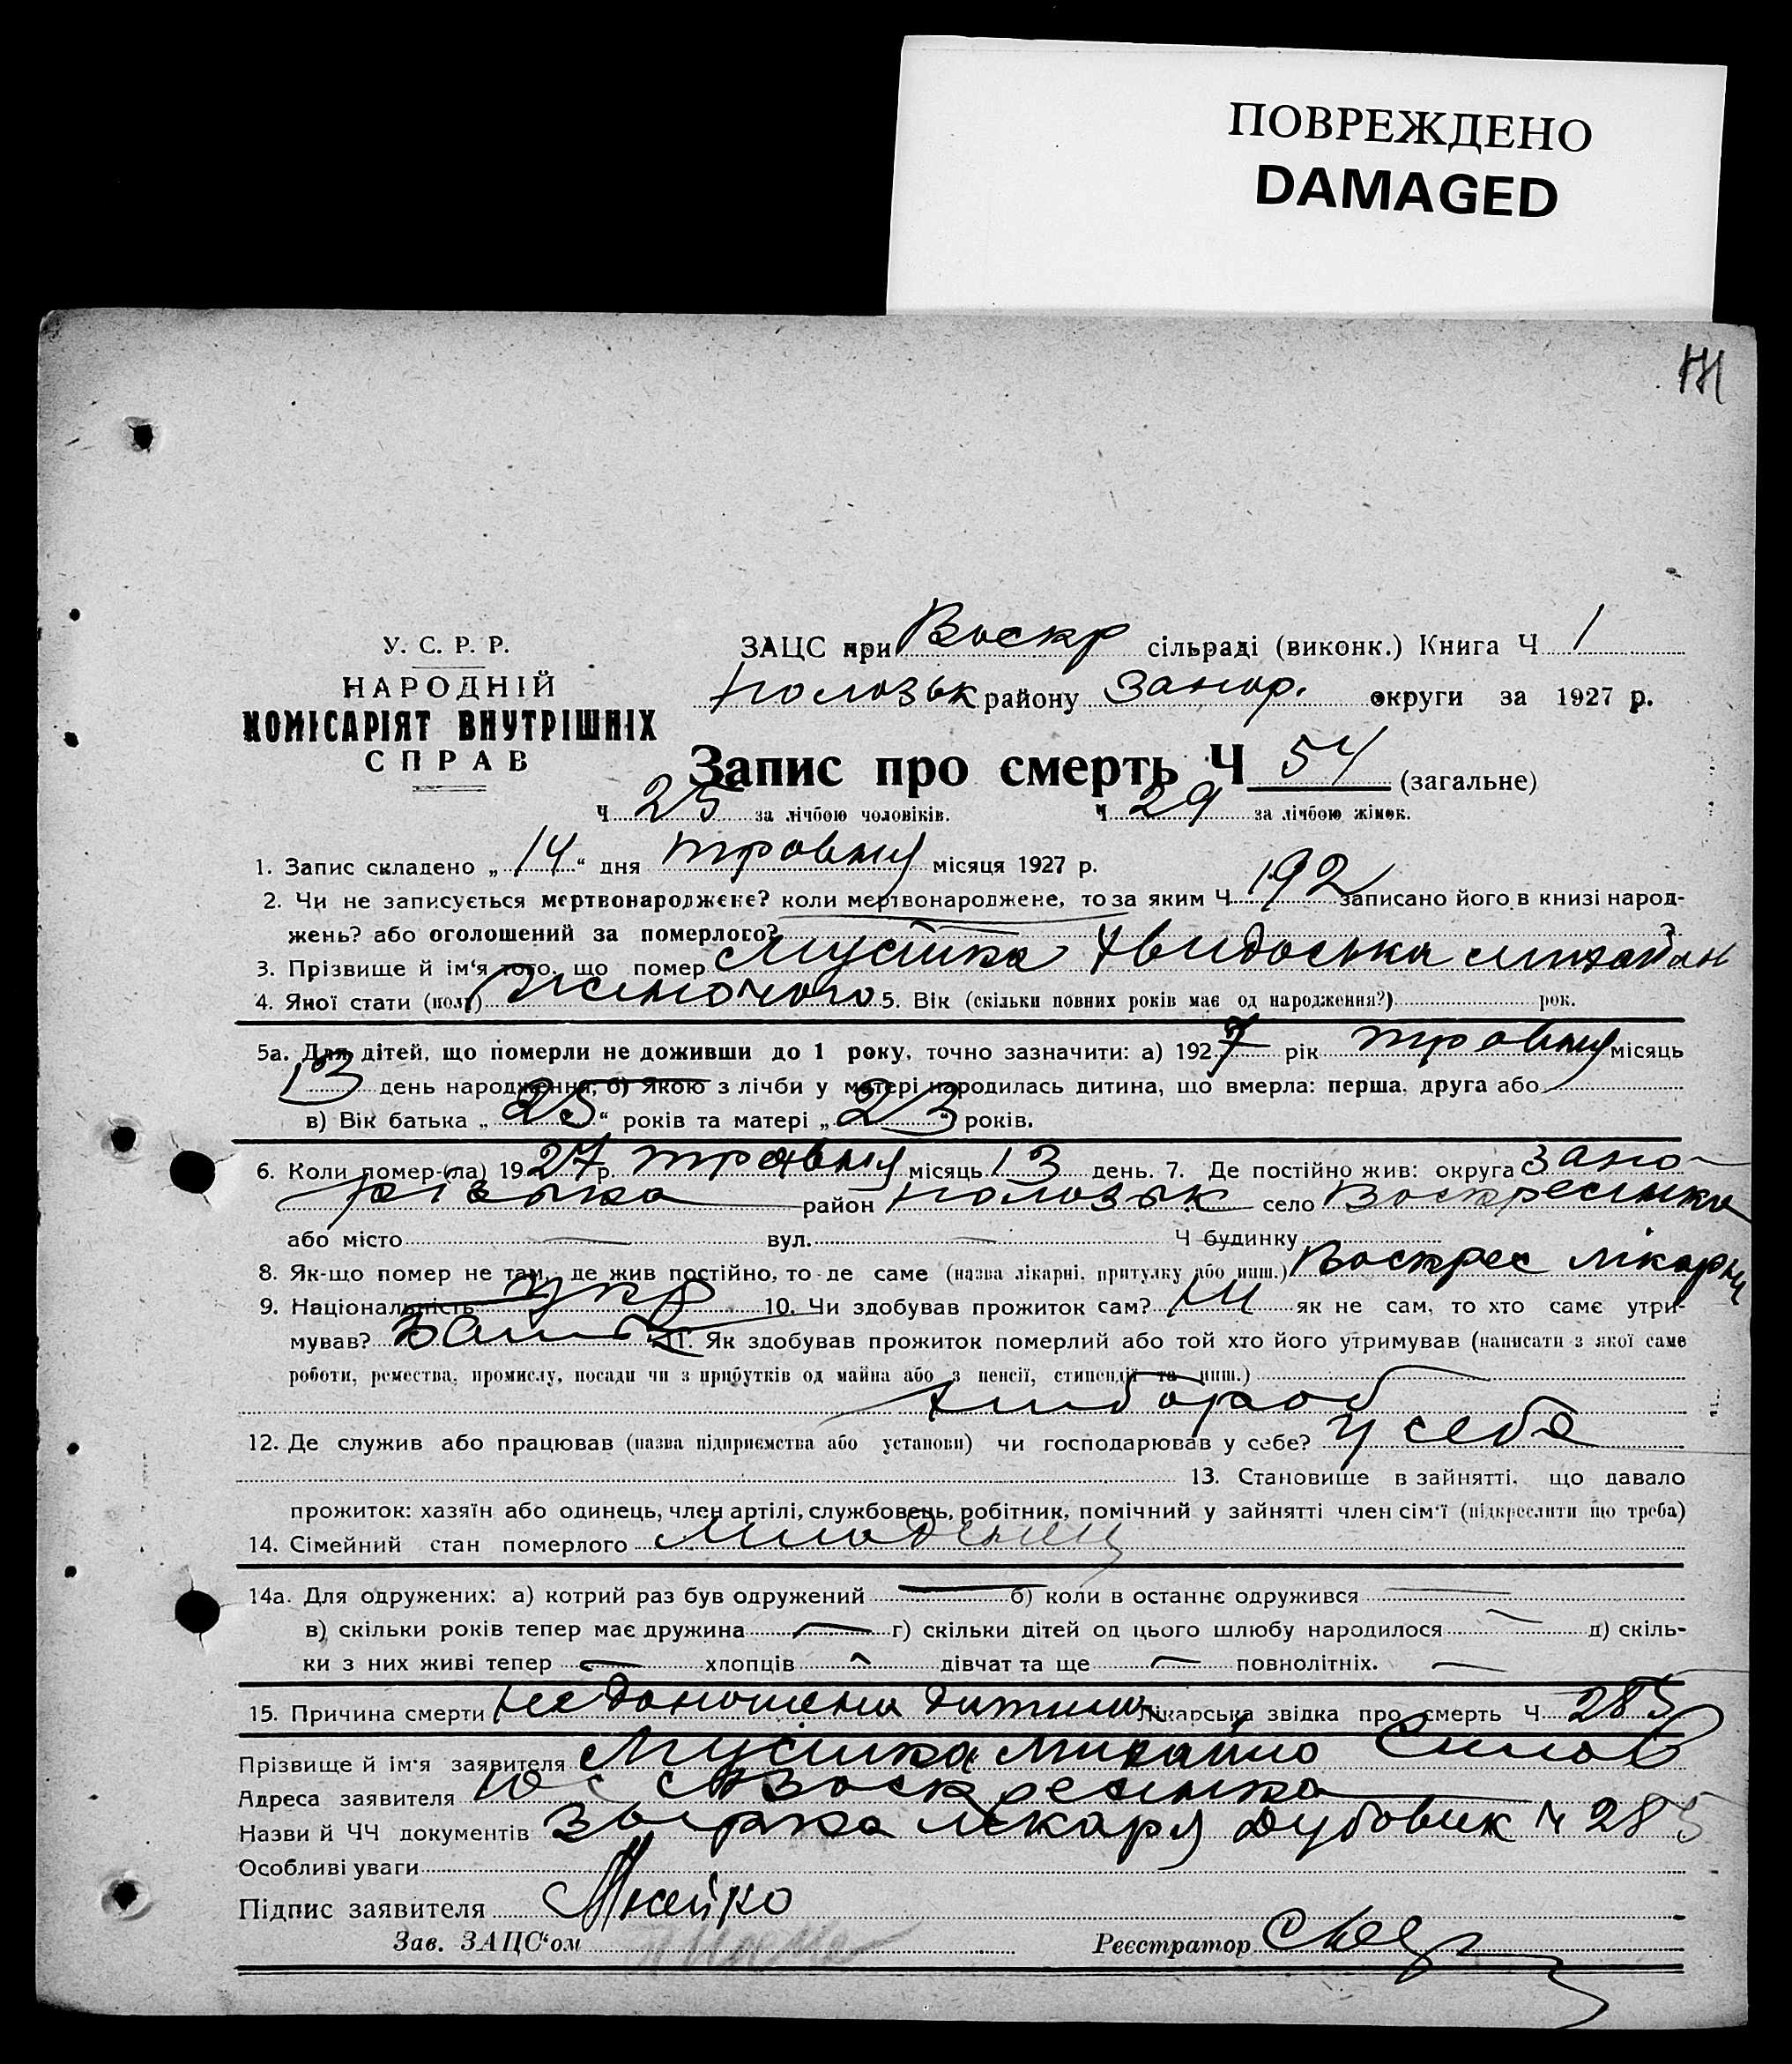 ПОВРЕЖДЕНО
DAMAGED
У. С. Р. Р.
НАРОДНІЙ
КОМІСАРІЯТ ВНУТРІШНІХ
СПРАВ
ЗАЦС при Воскр сільраді (виконк.) Книга Ч 1
Полозьк району Запор. округи за 1927 р.
Запис про смерть Ч 54 (загальне)
Ч 25 за лічбою чоловіків. Ч 29 за лічбою жінок.
1. Запис складено „ 14 “ дня травня місяця 1927 р.
2. Чи не записується мертвонароджене? коли мертвонароджене, то за яким Ч 192 записано його в книзі народ-
жень? або оголошений за померлого?
3. Прізвище й ім'я того, що помер
4. Якої стати (пол) Жіночого 5. Вік (скільки повних років має од народження?) рок.
5а. Для дітей, що померли не доживши до 1 року, точно зазначити: а) 1927 рік травня місяць
13 день народження, б) Якою з лічби у матері народилась дитина, що вмерла: перша, друга або
в) Вік батька „ 25 “ років та матері „ 23 “ років.
6. Коли помер-(ла) 1927 р. травня місяць 13 день. 7. Де постійно жив: округа Запо-
різька район Полозьк село Воскресінка
або місто вул. Ч будинку
8. Як-що помер не там, де жив постійно, то де саме (назва лікарні, притулку або инш.) Воскрес лікарні
9. Національність Укр 10. Чи здобував прожиток сам? Ні як не сам, то хто саме утри-
мував? Батько 11. Як здобував прожиток померлий або той хто його утримував (написати з якої саме
роботи, ремества, промислу, посади чи з прибутків од майна або з пенсії, стипендії та инш.)
Хлібороб
12. Де служив або працював (назва підприємства або установи) чи господарював у себе? у себе
13. Становище в зайнятті, що давало
прожиток: хазяїн або одинець, член артілі, службовець, робітник, помічний у зайнятті член сім'ї (підкреслити що треба)
14. Сімейний стан померлого младенец
14а. Для одружених: а) котрий раз був одружений б) коли в останнє одружився
в) скільки років тепер має дружина г) скільки дітей од цього шлюбу народилося д) скіль-
ки з них живі тепер хлопців дівчат та ще повнолітніх.
15. Причина смерти недоношена дитина Лікарська звідка про смерть Ч 285
Прізвище й ім'я заявителя Михайло
Адреса заявителя с Воскресінка
Назви й ЧЧ документів лікаря Дубовик № 285
Особливі уваги
Підпис заявителя
Зав. ЗАЦС'ом Реєстратор